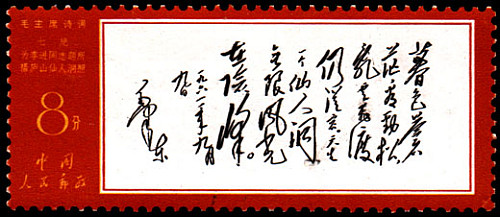 毛主席诗词
七绝
为李进同志题所
摄庐山仙人洞照
8分
中国
人民邮政
暮色蒼
茫看劲松
乱云飛渡
仍從容天生
一个仙人洞
无限风光
在險峰
一九六一年九月
九日
毛泽东